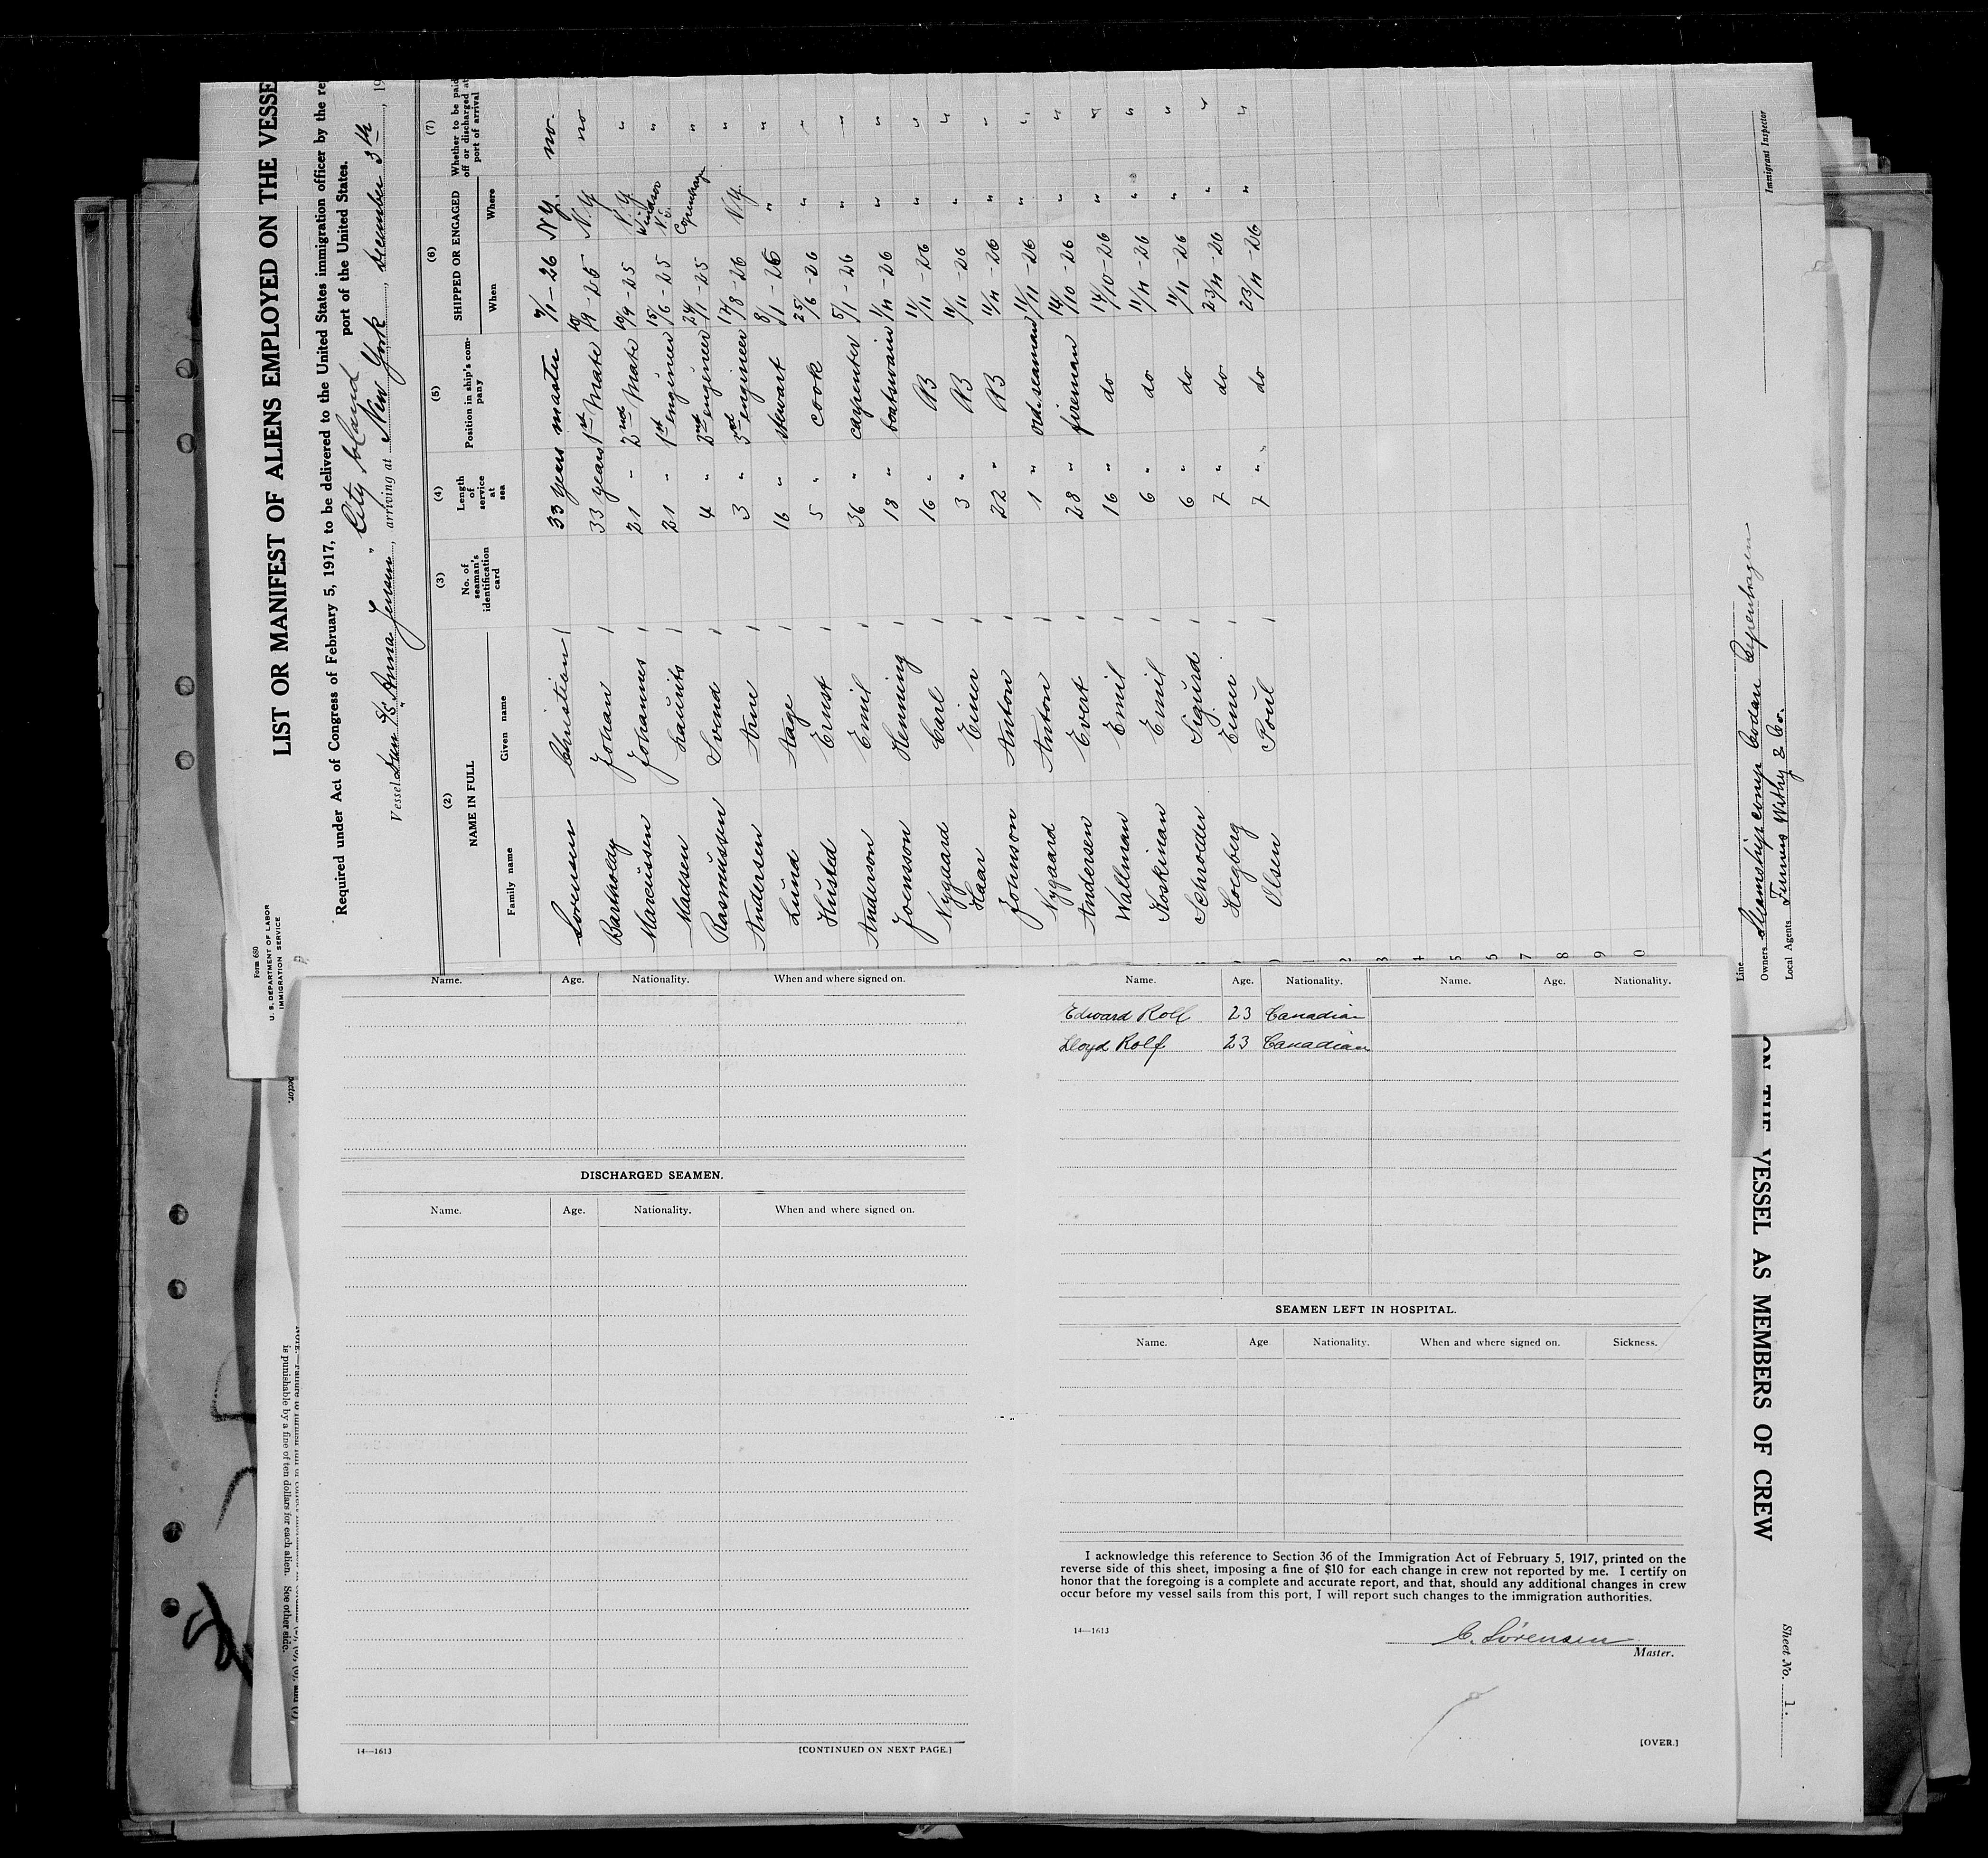 Form 680
U. S. DEPARTMENT OF LABOR
IMMIGRATION SERVICE
LIST OR MANIFEST OF ALIENS EMPLOYED ON THE VESSE
Required under Act of Congress of February 5, 1917, to be delivered to the United States immigration officer by the re
port of the United States.
City Island
Vessel Dan S/S "Anna Jensen", arriving at New York, december 3th, 19
(2) (3) (4) (5) (6) (7)
NAME IN FULL No. of seaman's identification card Length of service at sea Position in ship's company SHIPPED OR ENGAGED Whether to be paid off or discharged at port of arrival
Family name Given name When Where
Sorensen Christian 33 years master 7/1-26 N.Y. no.
Bartholdy Johan 33 years 1st Mate 19/9-25 N.Y no
Marcussen Johannes 21 " 2nd Mate 19/9-25 N.Y "
Madsen Laurits 21 " 1st engineer 15/6-25 Windsor "
Rasmussen Svend 4 " 2nd engineer 24/11-25 Copenhage "
Andersen Arne 3 " 3rd engineer 17/8-26 N.Y. "
Lund Aage 16 " stewart 8/1-26 " "
Husted Ernst 5 " cook 25/6-26 " "
Anderson Emil 36 " carpenter 5/1-26 " "
Joensson Henning 18 " boatswain 1/11-26 " "
Nygaard Carl 16 " AB 11/11-26 " "
Haar Einer 3 " AB 11/11-26 " "
Johnson Anton 22 " AB 11/11-26 " "
Nygaard Anton 1 " ord. seaman 11/11-26 " "
Andersen Evert 28 " fireman 14/10-26 " "
Wallman Emil 16 " do 14/10-26 " "
Koskinan Emil 6 " do 11/11-26 " "
Schrolder Sigurd 6 " do 11/11-26 " "
Holgberg Einer 7 " do 23/11-26 " "
Olsen Poul 7 " do 23/11-26 " "
Line
Owners Steamship comp Codan Copenhagen
Local Agents Furness Withy & Co.
Immigrant Inspector
Name. Age. Nationality. When and where signed on.
DISCHARGED SEAMEN.
Name. Age. Nationality. When and where signed on.
14—1613 [CONTINUED ON NEXT PAGE.]
Name. Age. Nationality. Name. Age. Nationality.
Edward Rolf 23 Canadian
Lloyd Rolf 23 Canadian
SEAMEN LEFT IN HOSPITAL.
Name. Age Nationality. When and where signed on. Sickness.
I acknowledge this reference to Section 36 of the Immigration Act of February 5, 1917, printed on the
reverse side of this sheet, imposing a fine of $10 for each change in crew not reported by me. I certify on
honor that the foregoing is a complete and accurate report, and that, should any additional changes in crew
occur before my vessel sails from this port, I will report such changes to the immigration authorities.
14—1613
C. Sørensen
Master.
[OVER.]
ON THE VESSEL AS MEMBERS OF CREW
Sheet No. 1.
is punishable by a fine of ten dollars for each alien. See other side.